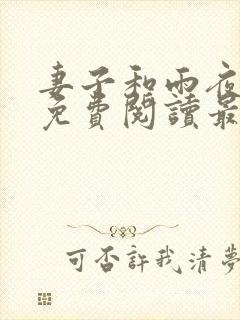 妻子和雨夜
免費閱讀最
可否許我清夢